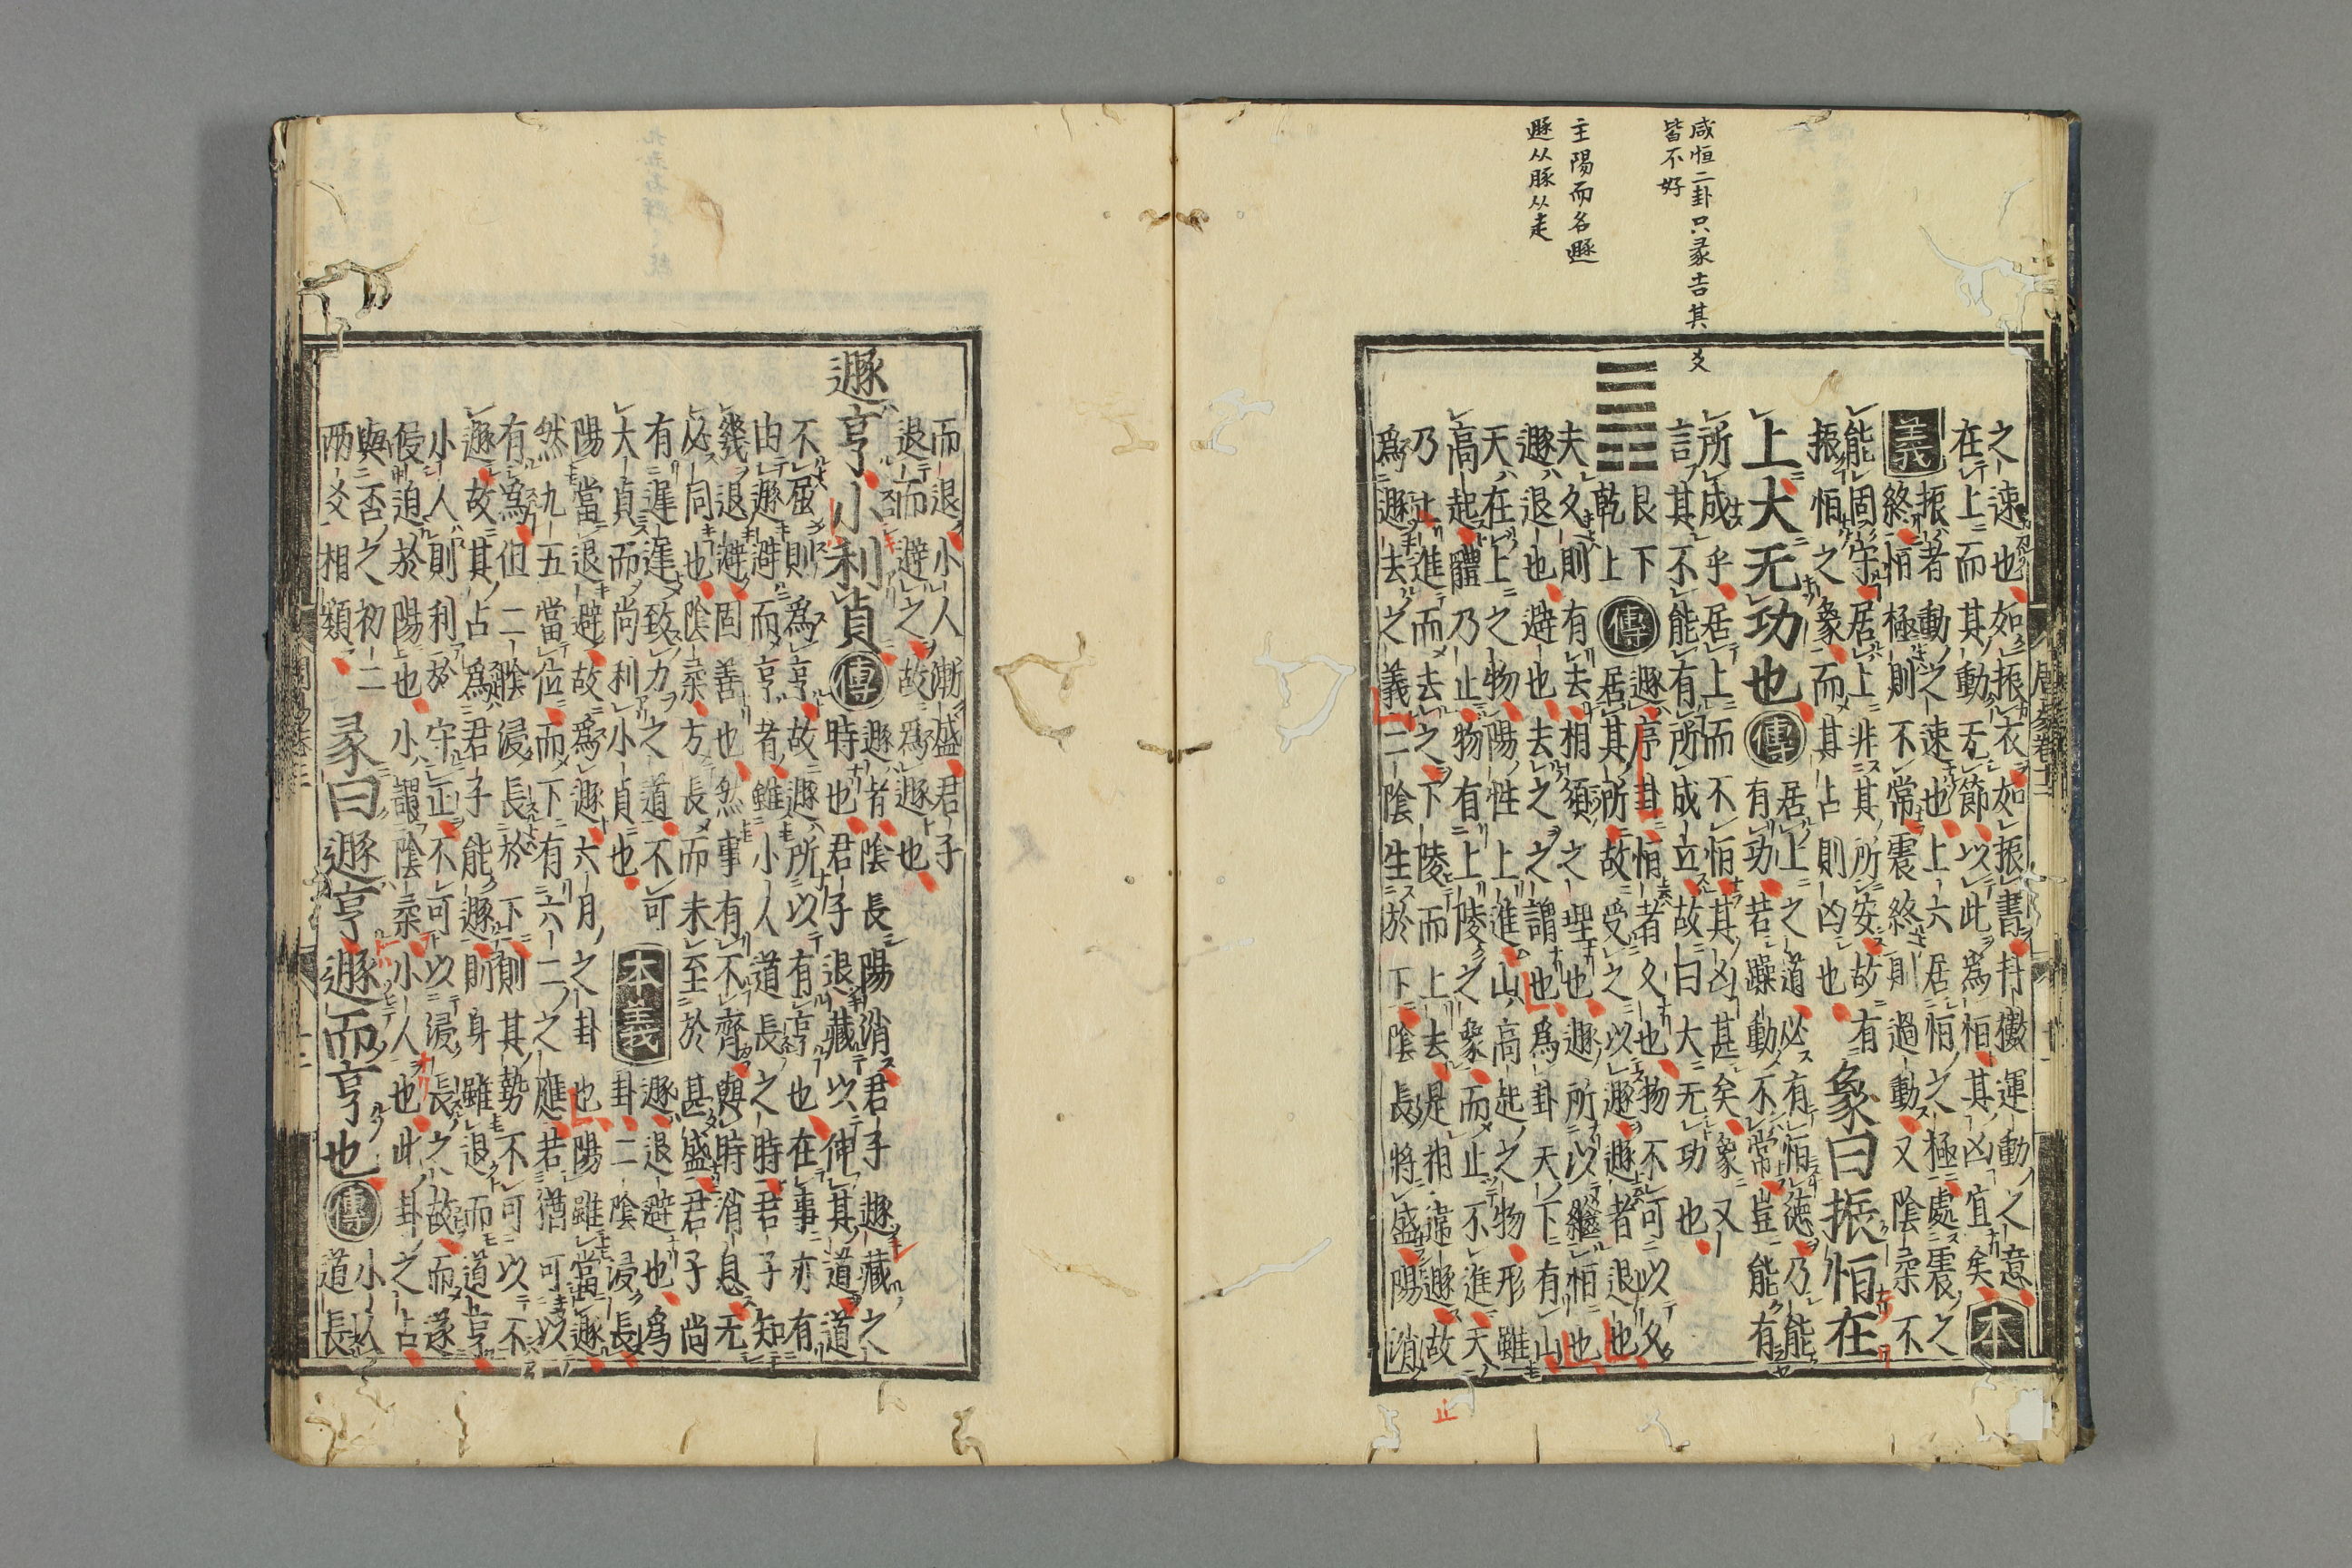 咸恒二卦只彖吉其爻
皆不好
主陽而名遯
遯从豚从走
之速也如振衣如振書抖擻運動之意
在上而其動无節以此為恒其凶宜矣本
義振者動之速也上六居恒之極處震之
終恒極則不常震終則過動又陰柔不
能固守居上非其所安故有
振恒之象而其占則凶也
象曰振恒在
上大无功也傳居上之道必有恒德乃能
有功若躁動不常豈能有
所成乎居上而不恒其凶甚矣象又
言其不能有所成立故曰大无功也
䷠艮下
乾上
傳遯序卦恒者久也物不可以久
居其所故受之以遯遯者退也
夫久則有去相須之理也遯所以繼恒也
遯退也避也去之之謂也為卦天下有山
天在上之物陽性上進山高起之物形雖
高起體乃止物有上陵之象而止不進天
乃上進而去之下陵而上去是相違遯故
為遯去之義二陰生於下陰長將盛陽消
止
而退小人漸盛君子
退而避之故為遯也
遯亨小利貞傳遯者陰長陽消君子遯藏之
時也君子退藏以伸其道道
不屈則為亨故遯所以有亨也在事亦有
由遯避而亨者雖小人道長之時君子知
幾退避固善也然事有不齊與時消息无
必同也陰柔方長而未至於甚盛君子尚
有遲遲致力之道不可
大貞而尚利小貞也
本義遯退避也為
卦二陰浸長
陽當退避故為遯六月之卦也陽雖當遯
然九五當位而下有六二之應若猶可以
有為但二陰浸長於下則其勢不可以不
遯故其占為君子能遯則身雖退而道亨
小人則利於守正不可以浸長之故而遂
侵迫於陽也小謂陰柔小人也此卦之占
與否之初二
兩爻相類
彖曰遯亨遯而亨也傳小人
道長